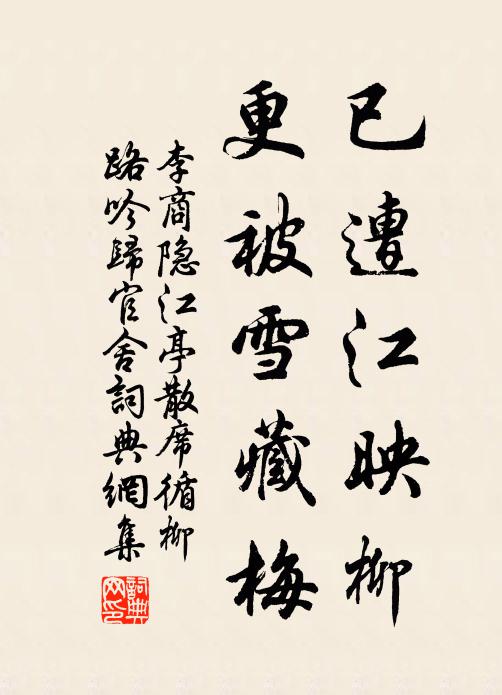 已遭江映柳
更被雪藏梅
李商隐江亭散席循柳
路吟歸官舍詞典網集
詞典网印